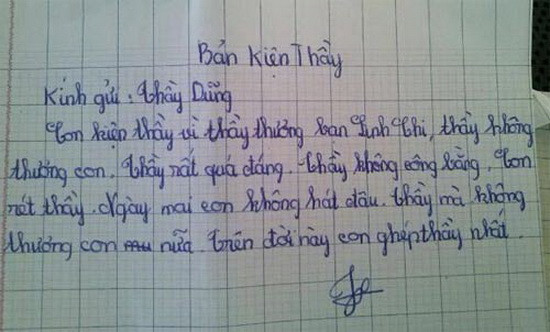 Bản kiện Thầy
Kính gửi: thầy Dũng
Con kiện thầy vì thầy thương bạn Linh Chi, thầy không
thương con. Thầy rất quá đáng. Thầy không công bằng. Con
rét thầy. Ngày mai con không hát đâu. Thầy mà không
thương con nữa. Trên đời này con ghép thầy nhất.